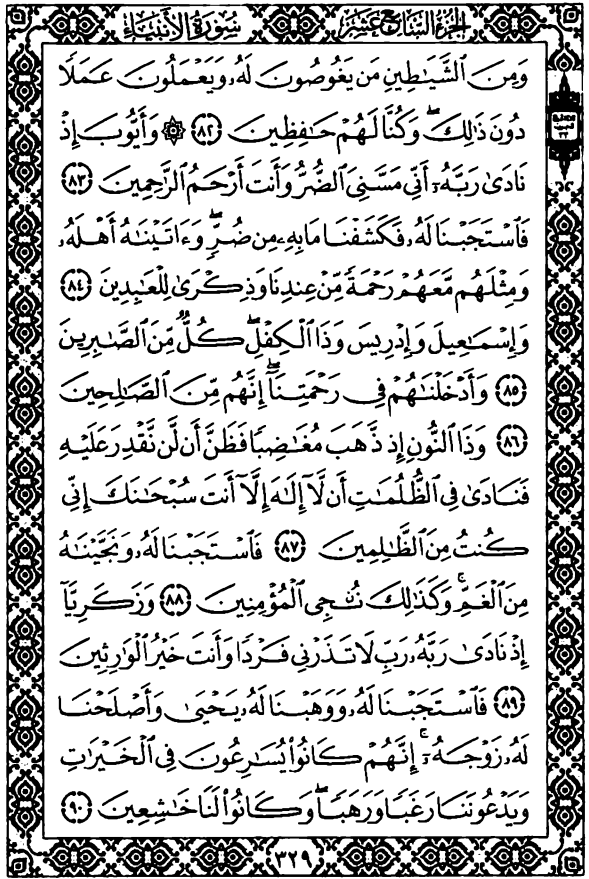 سُورَةُ الأَنْبِيَاءِ الجُزْءُ السَّابِعَ عَشَرَ
وَمِنَ ٱلشَّيَٰطِينِ مَن يَغُوصُونَ لَهُۥ وَيَعْمَلُونَ عَمَلًا
دُونَ ذَٰلِكَۖ وَكُنَّا لَهُمْ حَٰفِظِينَ ﴿٨٢﴾ ۞ وَأَيُّوبَ إِذْ
نَادَىٰ رَبَّهُۥٓ أَنِّي مَسَّنِيَ ٱلضُّرُّ وَأَنتَ أَرْحَمُ ٱلرَّٰحِمِينَ ﴿٨٣﴾
فَٱسْتَجَبْنَا لَهُۥ فَكَشَفْنَا مَا بِهِۦ مِن ضُرٍّۖ وَءَاتَيْنَٰهُ أَهْلَهُۥ
وَمِثْلَهُم مَّعَهُمْ رَحْمَةً مِّنْ عِندِنَا وَذِكْرَىٰ لِلْعَٰبِدِينَ ﴿٨٤﴾
وَإِسْمَٰعِيلَ وَإِدْرِيسَ وَذَا ٱلْكِفْلِۖ كُلٌّ مِّنَ ٱلصَّٰبِرِينَ
﴿٨٥﴾ وَأَدْخَلْنَٰهُمْ فِي رَحْمَتِنَآۖ إِنَّهُم مِّنَ ٱلصَّٰلِحِينَ
﴿٨٦﴾ وَذَا ٱلنُّونِ إِذ ذَّهَبَ مُغَٰضِبًا فَظَنَّ أَن لَّن نَّقْدِرَ عَلَيْهِ
فَنَادَىٰ فِي ٱلظُّلُمَٰتِ أَن لَّآ إِلَٰهَ إِلَّآ أَنتَ سُبْحَٰنَكَ إِنِّي
كُنتُ مِنَ ٱلظَّٰلِمِينَ ﴿٨٧﴾ فَٱسْتَجَبْنَا لَهُۥ وَنَجَّيْنَٰهُ
مِنَ ٱلْغَمِّۚ وَكَذَٰلِكَ نُۨجِي ٱلْمُؤْمِنِينَ ﴿٨٨﴾ وَزَكَرِيَّآ
إِذْ نَادَىٰ رَبَّهُۥ رَبِّ لَا تَذَرْنِي فَرْدًا وَأَنتَ خَيْرُ ٱلْوَٰرِثِينَ
﴿٨٩﴾ فَٱسْتَجَبْنَا لَهُۥ وَوَهَبْنَا لَهُۥ يَحْيَىٰ وَأَصْلَحْنَا
لَهُۥ زَوْجَهُۥٓۚ إِنَّهُمْ كَانُوا۟ يُسَٰرِعُونَ فِي ٱلْخَيْرَٰتِ
وَيَدْعُونَنَا رَغَبًا وَرَهَبًاۖ وَكَانُوا۟ لَنَا خَٰشِعِينَ ﴿٩٠﴾
٣٢٩